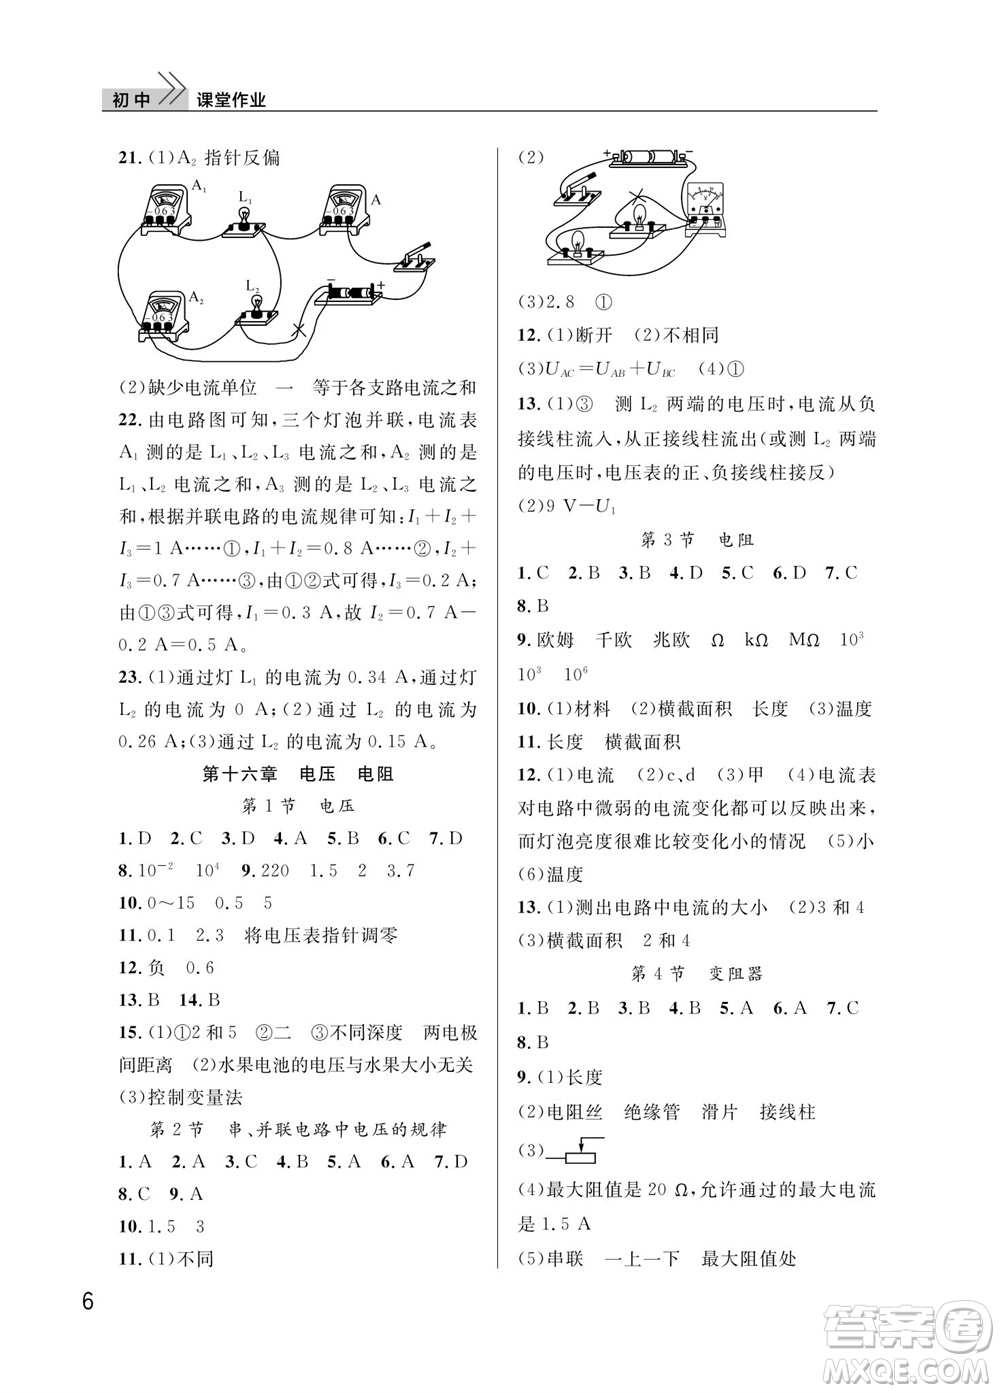 初中
课堂作业
21.(1)A₂ 指针反偏
A₁
L₁
A
−0.6 3
−0.6 3
A₂
L₂
−
+
−0.6 3
(2)缺少电流单位 一 等于各支路电流之和
22.由电路图可知,三个灯泡并联,电流表
A₁ 测的是 L₁、L₂、L₃ 电流之和,A₂ 测的是
L₁、L₂ 电流之和,A₃ 测的是 L₂、L₃ 电流之
和,根据并联电路的电流规律可知:I₁+I₂+
I₃=1 A……①,I₁+I₂=0.8 A……②,I₂+
I₃=0.7 A……③,由①②式可得 I₃=0.2 A;
由①③式可得,I₁=0.3 A,故 I₂=0.7 A−
0.2 A=0.5 A。
23.(1)通过灯 L₁ 的电流为 0.34 A,通过灯
L₂ 的电流为 0 A;(2)通过 L₂ 的电流为
0.26 A;(3)通过 L₂ 的电流为 0.15 A。
第十六章 电压 电阻
第 1 节 电压
1.D 2.C 3.D 4.A 5.B 6.C 7.D
8.10⁻² 10⁴ 9.220 1.5 2 3.7
10.0～15 0.5 5
11.0.1 2.3 将电压表指针调零
12.负 0.6
13.B 14.B
15.(1)①2 和 5 ②二 ③不同深度 两电极
间距离 (2)水果电池的电压与水果大小无关
(3)控制变量法
第 2 节 串、并联电路中电压的规律
1.A 2.A 3.C 4.B 5.A 6.A 7.D
8.C 9.A
10.1.5 3
11.(1)不同
(2)
+
−
(3)2.8 ①
12.(1)断开 (2)不相同
(3)U_AC=U_AB+U_BC (4)①
13.(1)③ 测 L₂ 两端的电压时,电流从负
接线柱流入,从正接线柱流出(或测 L₂ 两端
的电压时,电压表的正、负接线柱接反)
(2)9 V−U₁
第 3 节 电阻
1.C 2.B 3.B 4.D 5.C 6.D 7.C
8.B
9.欧姆 千欧 兆欧 Ω kΩ MΩ 10³
10³ 10⁶
10.(1)材料 (2)横截面积 长度 (3)温度
11.长度 横截面积
12.(1)电流 (2)c、d (3)甲 (4)电流表
对电路中微弱的电流变化都可以反映出来,
而灯泡亮度很难比较变化小的情况 (5)小
(6)温度
13.(1)测出电路中电流的大小 (2)3 和 4
(3)横截面积 2 和 4
第 4 节 变阻器
1.B 2.B 3.A 4.D 5.B 6.A 7.C
8.B
9.(1)长度
(2)电阻丝 绝缘管 滑片 接线柱
(3)
(4)最大阻值是 20 Ω,允许通过的最大电流
是 1.5 A
(5)串联 一上一下 最大阻值处
6
答案圈
MXQE.COM